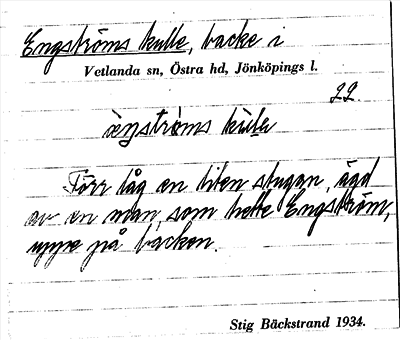 Engströms kulle, backe i
Vetlanda sn, Östra hd, Jönköpings l.
22.
ängströms kulle
Förr låg en liten stugan, ägd
av en man, som hette Engström,
uppe på backen.
Stig Bäckstrand 1934.